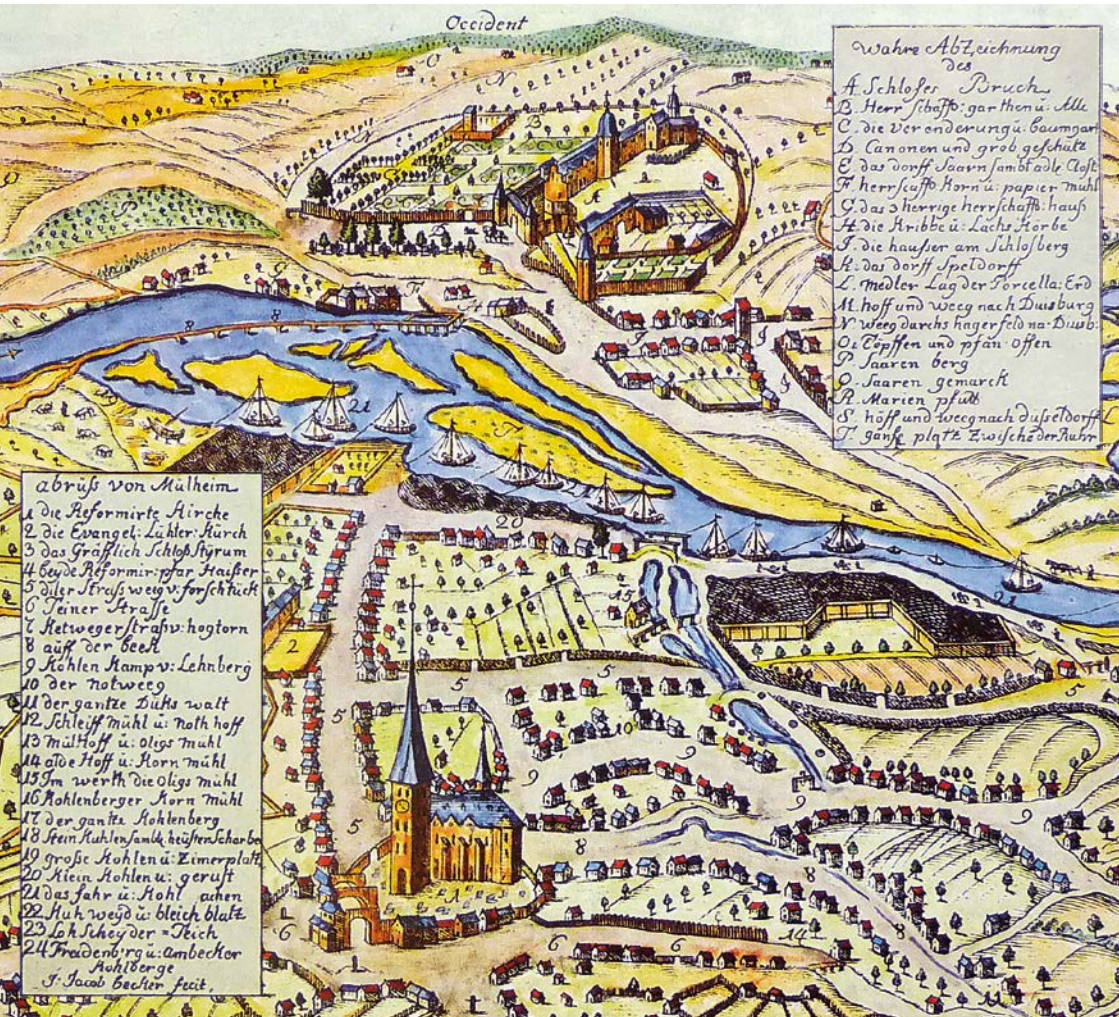 Occident
Wahre Abzeichnung
des
A. Schloses Bruch
B. Herrschäffts: garthen ü: Alle
C. die veronderung ü. baumgart
D. Canonen und grob geschütz
E. das dorff Saarn sambt adle Clost
F. herrscaffts Korn ü: papier mühl
G. das 3 herrige herrschäffts: hauß
H. die Kribbe ü: Lachs Körbe
J. die hauser am Schlosberg
K. das dorff Speldorff
L. medler Lag der Porcella: Erd
M. hoff und weeg nach Duisburg
N. weeg durchs hagerfeld na: Duisb:
O. Töpffen und pfan: offen
P. Saaren berg
Q. Saaren gemarck
R. Marien pfütt
S. höff und weeg nach düsseldorff
T. gänse platz Zwische der Ruhr
abrüss von Mülheim
1 die Reformirte Kirche
2 die Evangel: Lühter: Kürch
3 das Gräfflich Schloß Styrum
4 beyde Reformir: pfar Haüßer
5 diler Strass weig v: forschtück
6 Teiner Strasse
7 Ketweger strass v: hogtorn
8 auff der beek
9 Kohlen Kamp v: Lehnberg
10 der notweeg
11 der gantze Düks walt
12 Schleiff mühl ü: noth hoff
13 mülHoff ü: oligs mühl
14 alde Hoff ü: Korn mühl
15 Im werth die oligs mühl
16 Kohlenberger Korn mühl
17 der gantze Kohlenberg
18 Stein Kuhlen sambt heüsten Scharbe
19 große Kohlen ü: Zimerplatt
20 Klein Kohlen u: gerüst
21 das fahr ü: Kohl achen
22 Kuh weyd ü: bleich blatz
23 Loh Scheyder = Teich
24 Freidenb:rg ü: ambecker
Kohlberge
J. Jacob becker fecit.